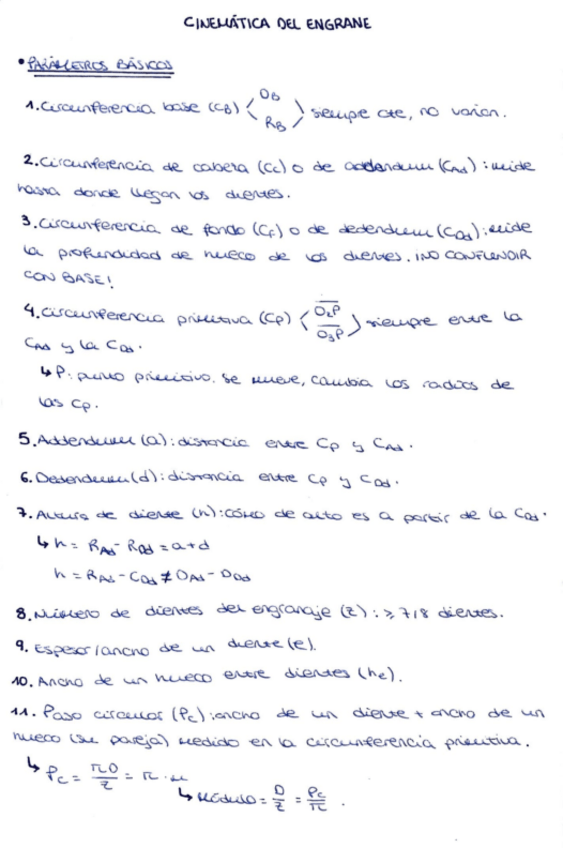 CINEMÁTICA DEL ENGRANE
• PARÁMETROS BÁSICOS
1. Circunferencia base (CB) < DB RB > siempre cte, no varían.
2. Circunferencia de cabeza (Cc) o de addendum (CAd) : mide
hasta donde llegan los dientes.
3. Circunferencia de fondo (CF) o de dedendum (CDd) : mide
la profundidad de hueco de los dientes. ¡NO CONFUNDIR
CON BASE!
4. Circunferencia primitiva (Cp) < O2P O3P > siempre entre la
CAd y la CDd.
↳ P: punto primitivo. Se mueve, cambia los radios de
las Cp.
5. Addendum (a) : distancia entre Cp y CAd.
6. Dedendum (d) : distancia entre Cp y CDd.
7. Altura de diente (h) : cómo de alto es a partir de la CDd.
↳ h = RAd - RDd = a+d
h = RAd - CDd ≠ DAd - DDd
8. Número de dientes del engranaje (Z) : ≥ 7/8 dientes.
9. Espesor/ancho de un diente (e).
10. Ancho de un hueco entre dientes (he).
11. Paso circular (Pc) : ancho de un diente + ancho de un
hueco (su pareja) medido en la circunferencia primitiva.
↳ Pc = πD/Z = π·m
↳ Módulo = D/Z = Pc/π .